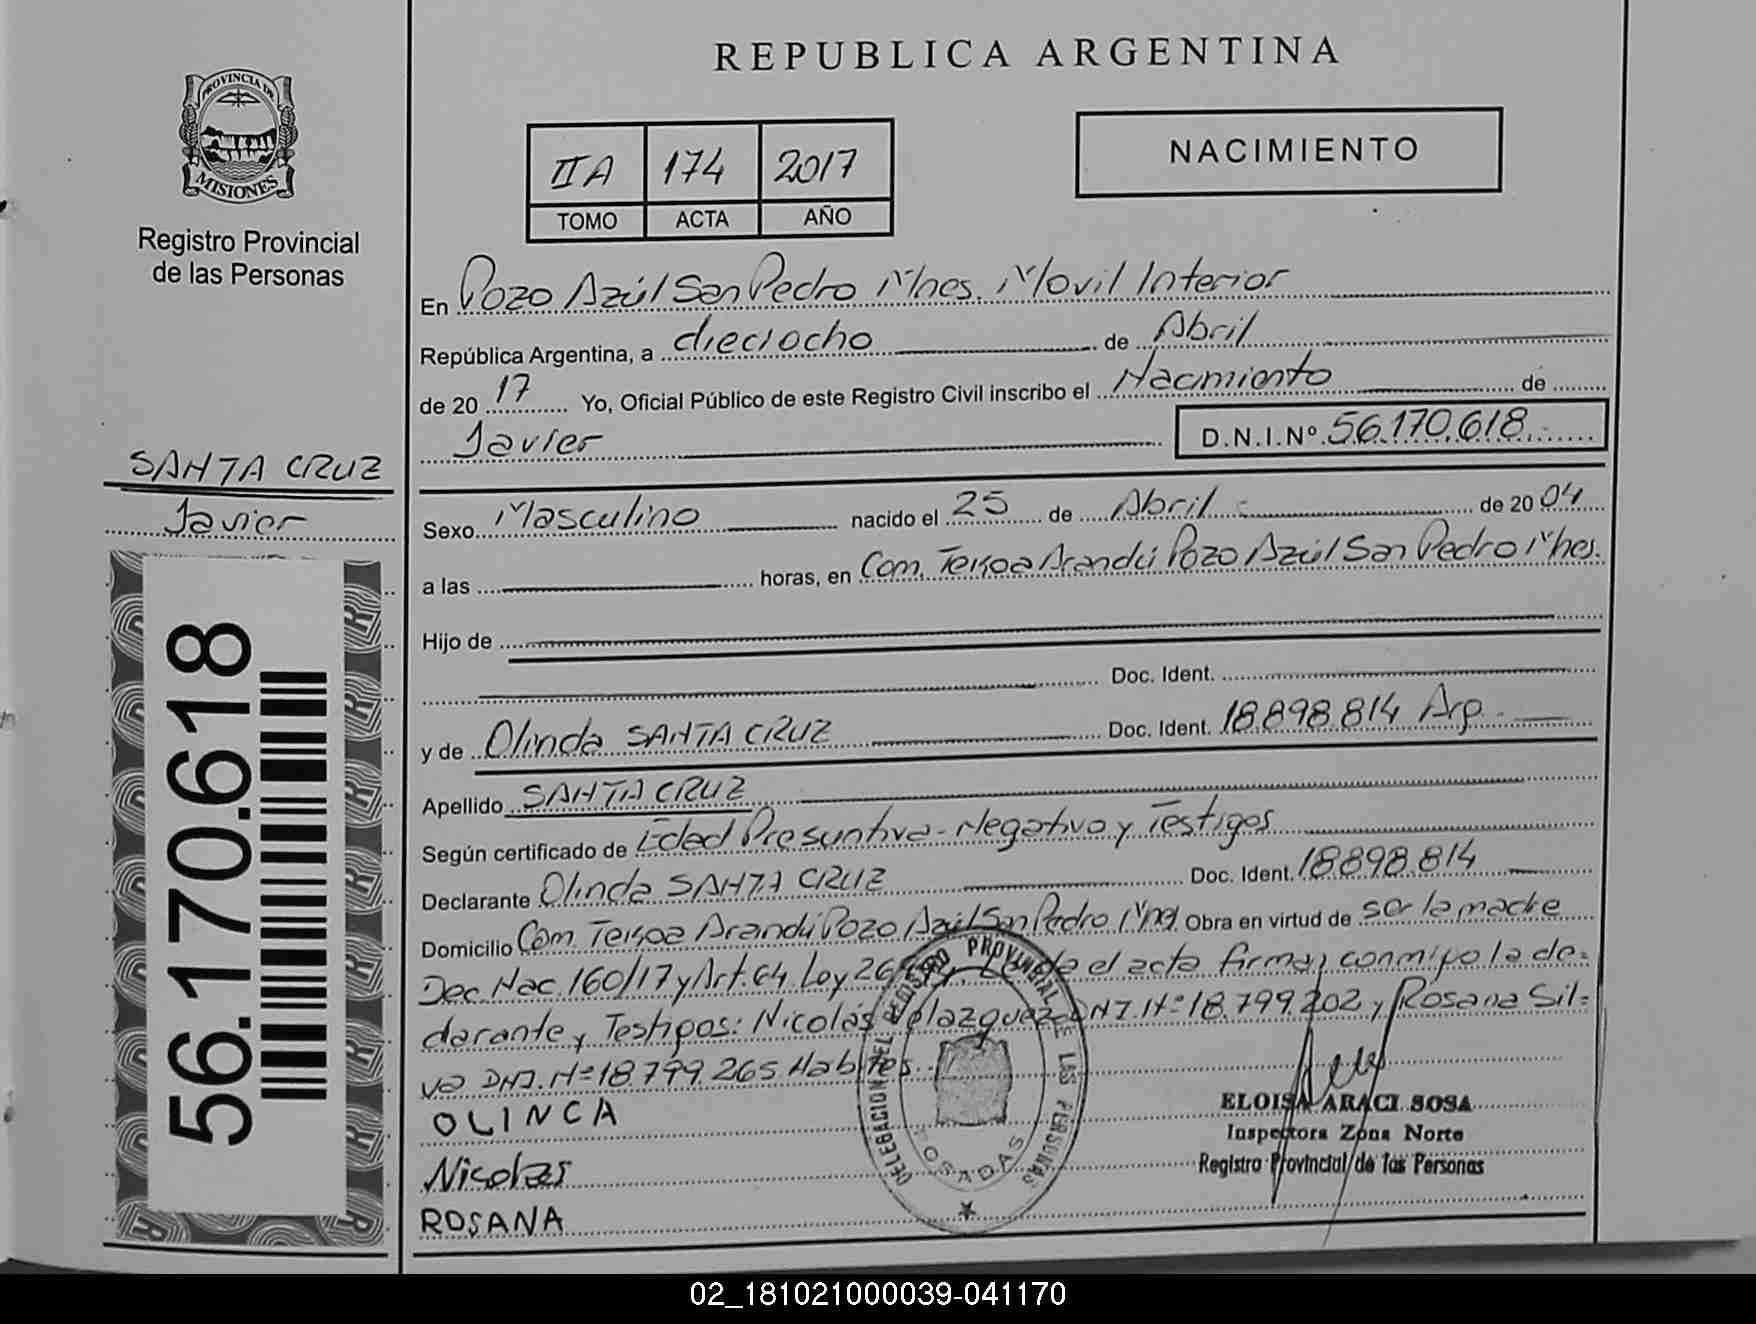 REPUBLICA ARGENTINA
PROVINCIA DE
MISIONES
Registro Provincial
de las Personas
IIA 174 2017
TOMO ACTA AÑO
NACIMIENTO
En Pozo Azúl San Pedro Mnes. Movil Interior
República Argentina, a dieciocho de Abril
de 20 17 Yo, Oficial Público de este Registro Civil inscribo el Nacimiento de
Javier D.N.I.Nº 56.170.618
SANTA CRUZ
Javier
56.170.618
Sexo Masculino nacido el 25 de Abril de 20 04
a las horas, en Com. Arandú Pozo Azúl San Pedro Mnes.
Hijo de
Doc. Ident.
y de Olinda SANTA CRUZ Doc. Ident. 18.898.814 Arg.
Apellido SANTA CRUZ
Según certificado de Edad Presuntiva - Negativo y Testigos
Declarante Olinda SANTA CRUZ Doc. Ident. 18.898.814
Domicilio Com. Arandú Pozo Azúl San Pedro Mnes Obra en virtud de ser la madre
Dec. Nac. 160/17 y Art. 64 Ley el acta firman conmigo la de=
clarante y Testigos: Nicolás Velazquez DNI. Nº 18.799.202 y Rosana Sil=
va DNI. Nº 18.799.265 Habites.
OLINCA
Nicolas
ROSANA
DELEGACION DEL REGISTRO PROVINCIAL DE LAS PERSONAS
POSADAS
ELOISA ARACI SOSA
Inspectora Zona Norte
Registro Provincial de las Personas
02_181021000039-041170